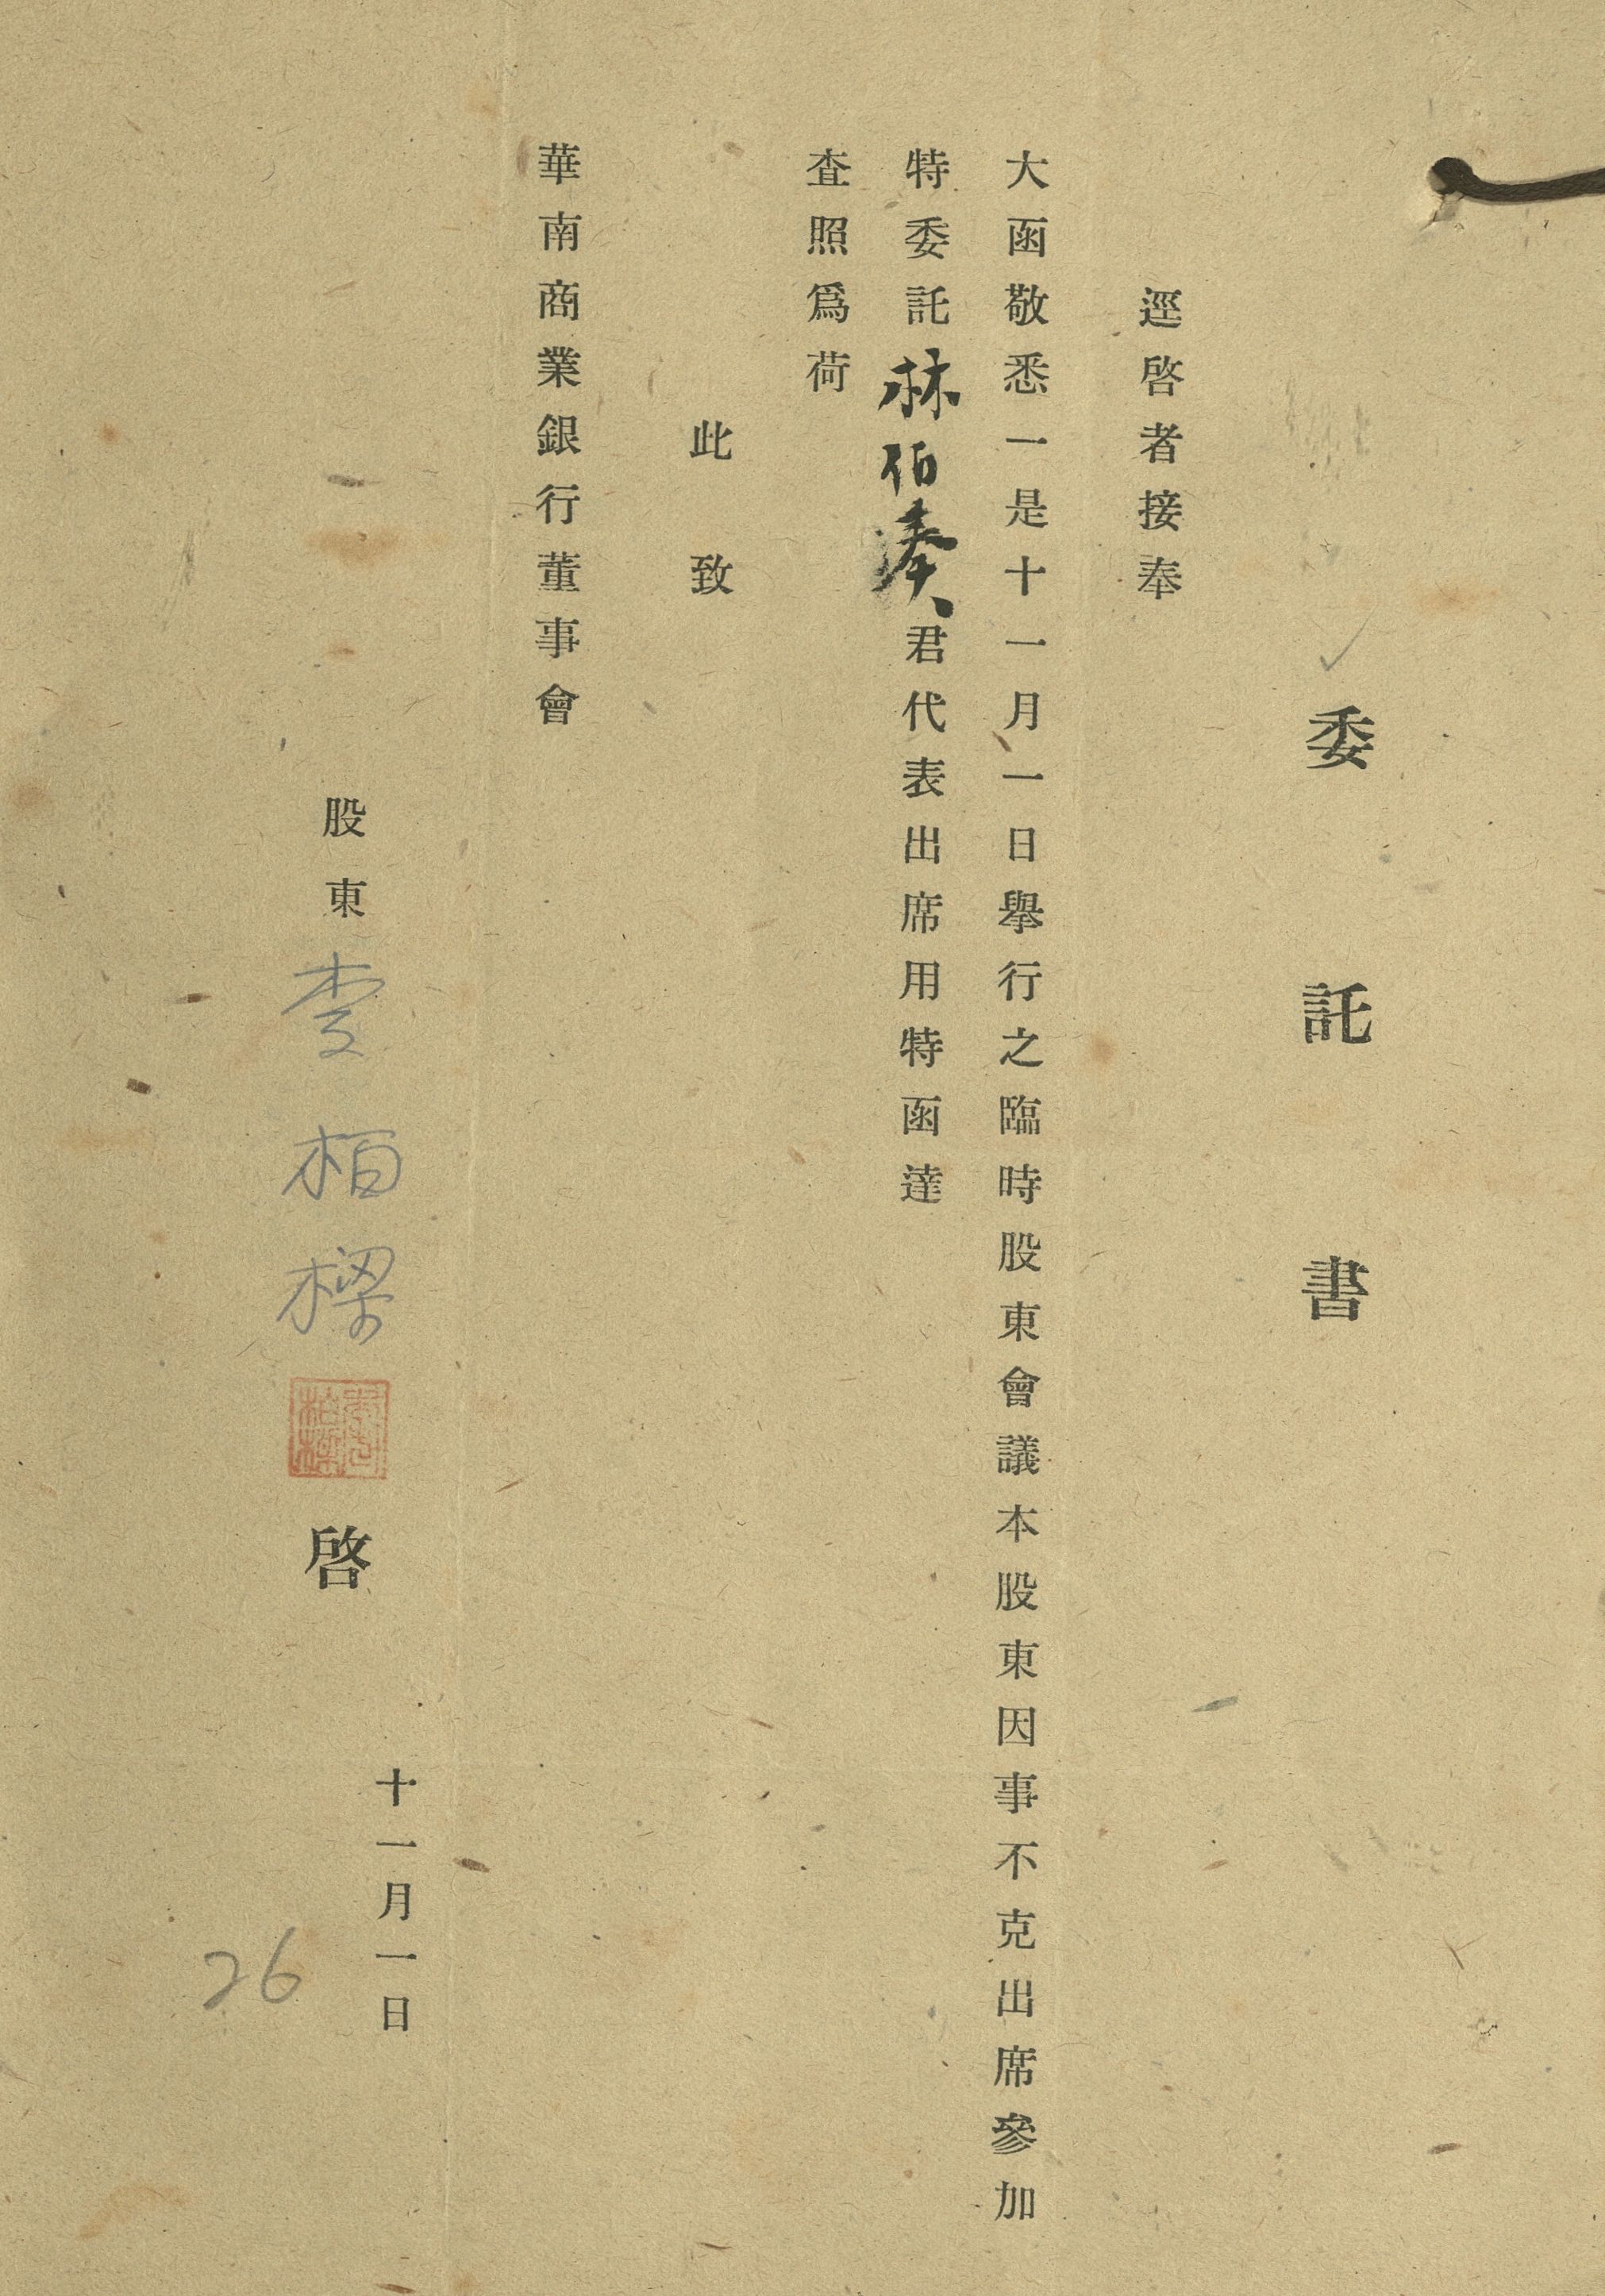 委託書
逕啓者接奉
大函敬悉一是十一月一日舉行之臨時股東會議本股東因事不克出席參加
特委託林伯湊君代表出席用特函達
查照爲荷
此致
華南商業銀行董事會
股東李柏樑啓
十一月一日
26